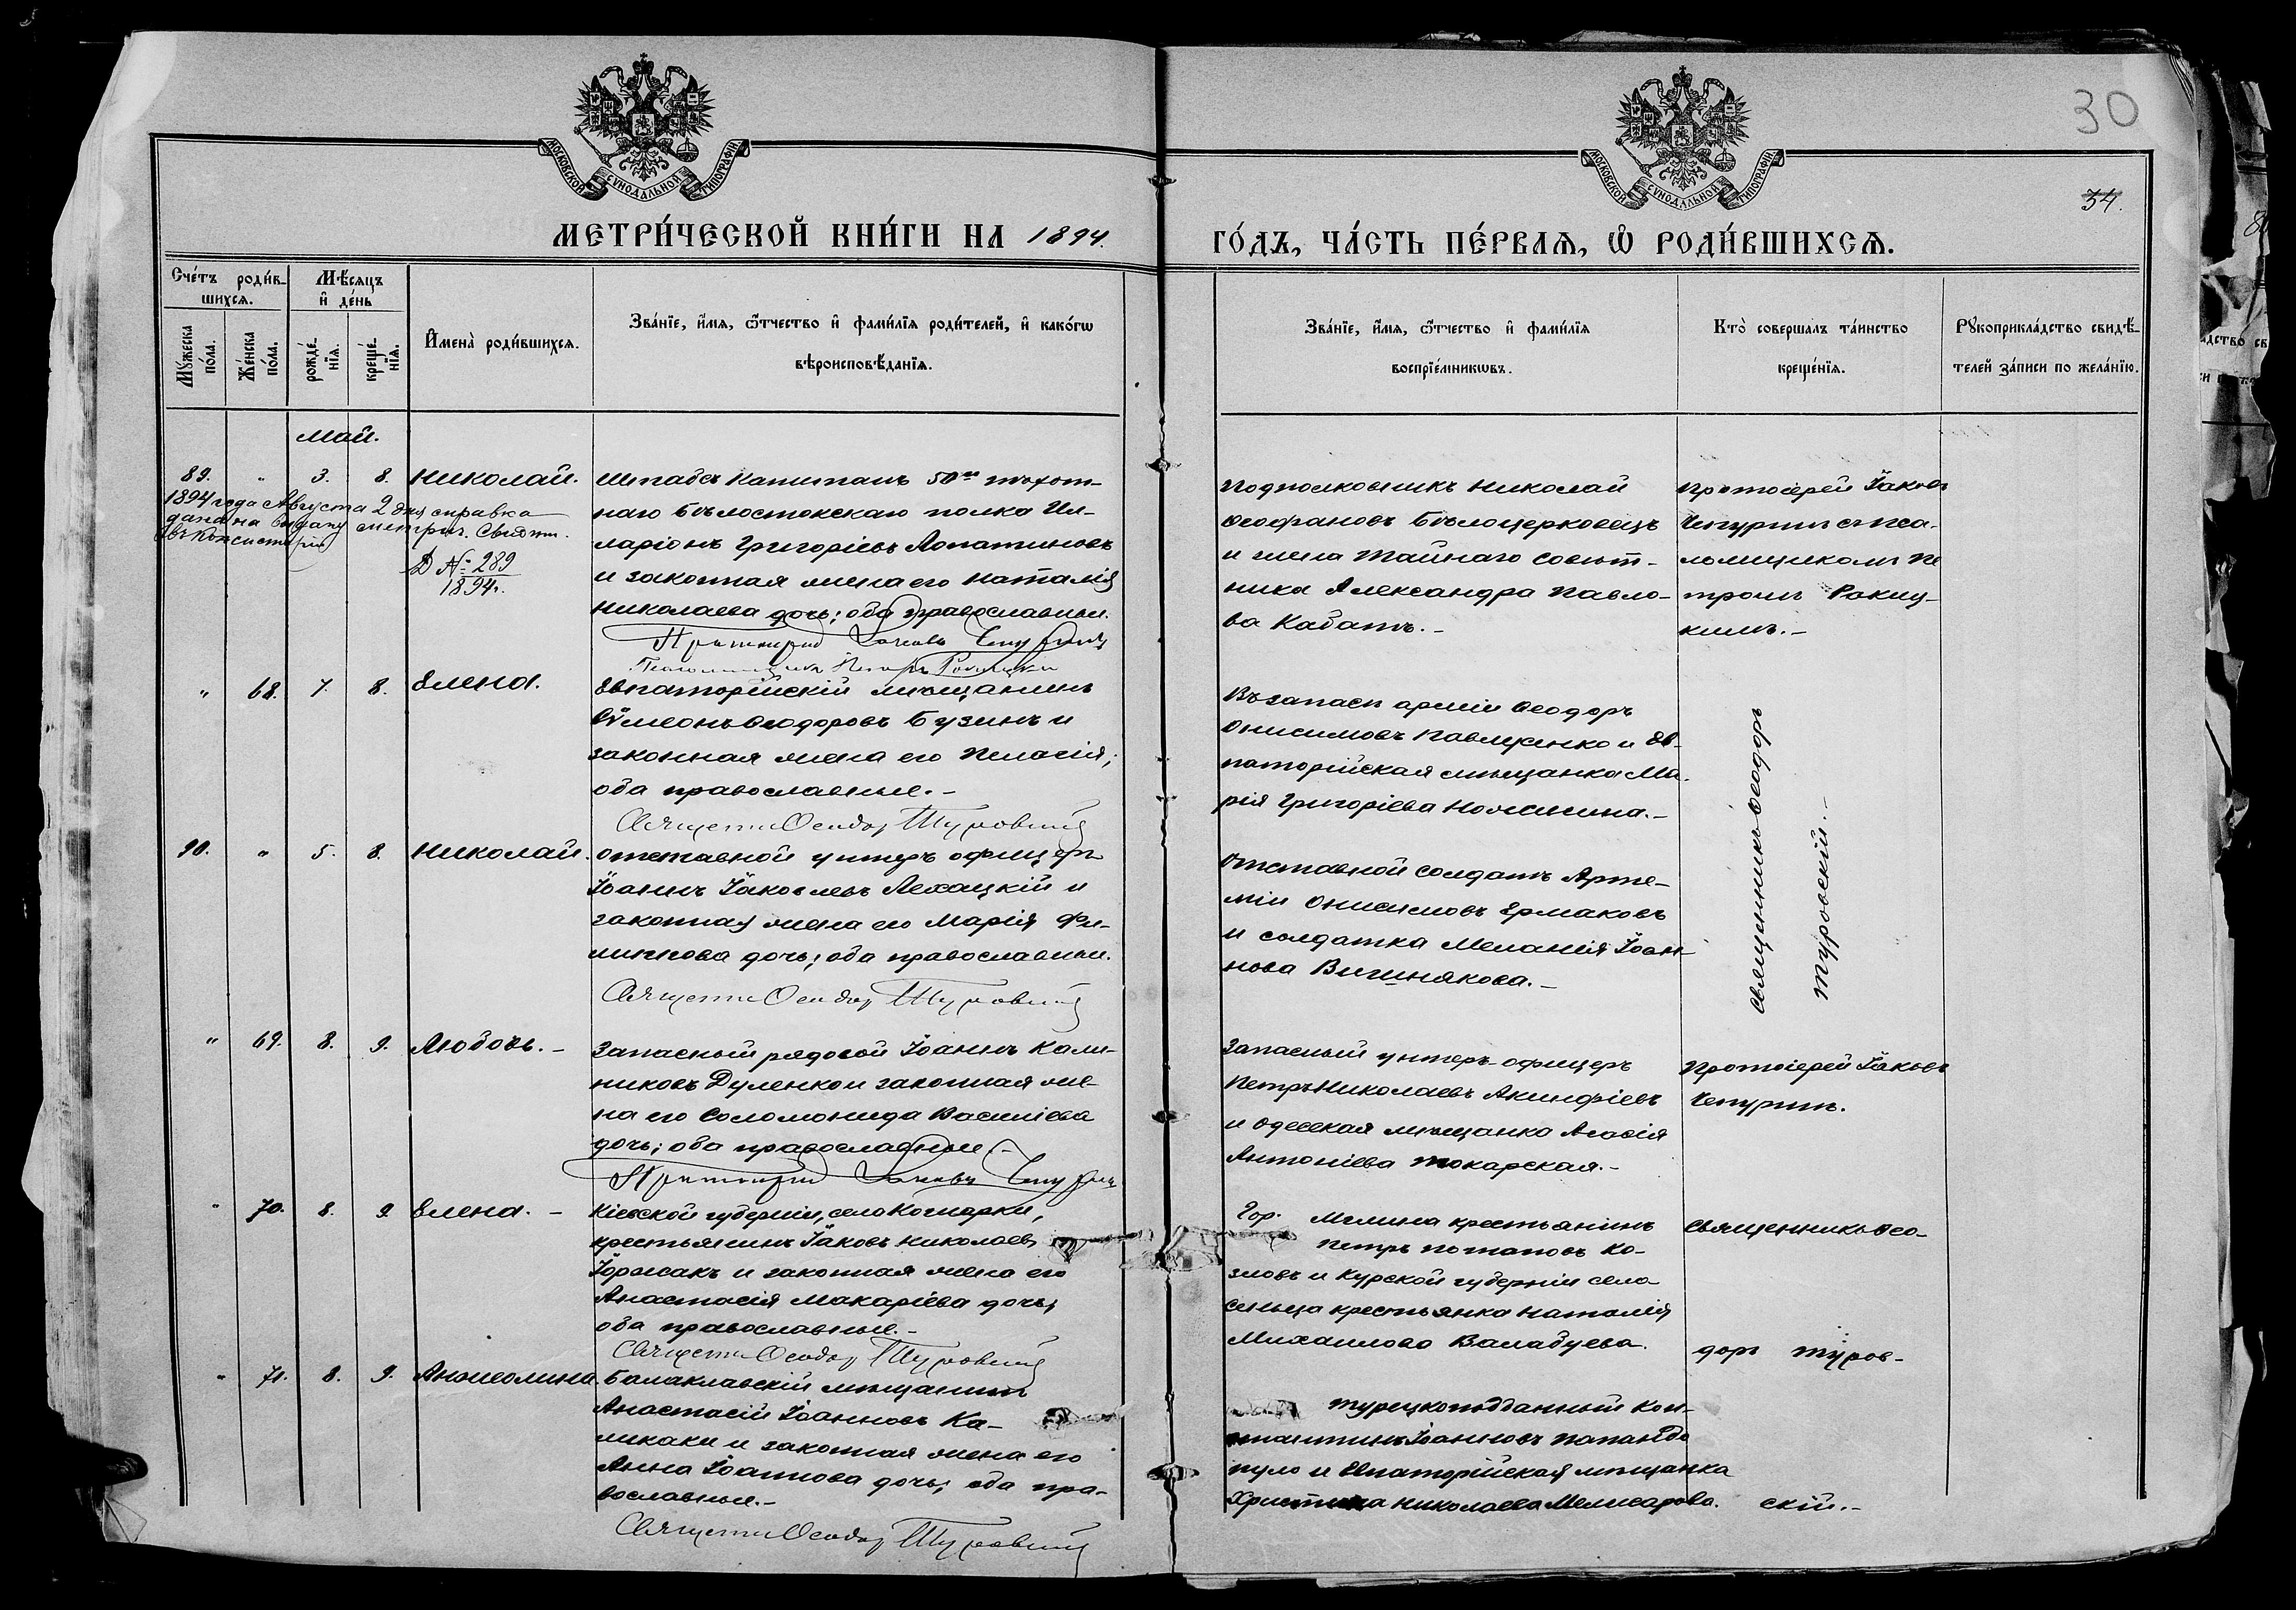 30
34.
МОСКОВСКОЙ СѴНОДАЛЬНОЙ ТИПОГРАФІИ
МОСКОВСКОЙ СѴНОДАЛЬНОЙ ТИПОГРАФІИ
МЕТРИ́ЧЕСКОЙ КНИ́ГИ НА 1894. ГО́ДЪ, ЧА́СТЬ ПЕ́РВАѦ, Ѡ РОДИ́ВШИХСѦ.
Сче́тъ роди́в-
шихсѧ.
Мꙋжеска по́ла.
Же́нска по́ла.
Мѣ́сѧцъ
и҆ де́нь
рожде́-
нїѧ.
креще́-
нїѧ.
И҆мена̀ роди́вшихсѧ.
Зва́нїе, и҆́мѧ, ѻ҆́тчество и҆ фами́лїѧ роди́телей, и҆ како́гѡ
вѣроисповѣ́данїѧ.
Зва́нїе, и҆́мѧ, ѻ҆́тчество и҆ фами́лїѧ
воспрїе́мникѡвъ.
Кто̀ соверша́лъ та́инство
креще́нїѧ.
Рꙋкоприкла́дство свидѣ́-
телей за́писи по жела́нїю.
Май.
89. " 3. 8. Николай.
1894 года Августа 2 дня справка
дана на выдачу метрич. свидѣт.
въ Консисторію
Д № 289
1894 г.
Штабсъ Капитанъ 50го пѣхот-
наго Бѣлостокскаго полка Ил-
ларіонъ Григоріевъ Лопатиновъ
и законная жена его Наталія
Николаева дочь; оба православные.
Протоіерей Іаковъ Чепуринъ
Псаломщикъ Петръ Рокицкій
Подполковникъ Николай
Ѳеофановъ Бѣлоцерковецъ
и жена Тайнаго Совѣт-
ника Александра Павло-
ва Кабатъ.-
Протоіерей Іаковъ
Чепуринъ съ пса-
ломщикомъ Пе
тромъ Рокиц-
кимъ.-
" 68. 7. 8. Елена.
Евпаторійскій мѣщанинъ
Сѵмеонъ Ѳеодоровъ Бузинъ и
законная жена его Пелагія;
оба православные.-
Священн. Ѳеодоръ Туровскій
Въ запасѣ арміи Ѳеодоръ
Онисимовъ Павлученко и Ев-
паторійская мѣщанка Ма-
рія Григоріева Номинина.-
Священникъ Ѳеодоръ
Туровскій.-
90. " 5. 8. Николай.
Отставной унтеръ офицеръ
Іоаннъ Іаковлевъ Лехацкій и
законная жена его Марія Фи-
липпова дочь; оба православные.
Священн. Ѳеодоръ Туровскій
Отставной солдатъ Арте-
мій Онисимовъ Ермаковъ
и солдатка Меланія Іоан-
нова Вишнякова.-
" 69. 8. 9. Любовь.-
Запасный рядовой Іоаннъ Кали-
никовъ Дуленко и законная же-
на его Соломонида Василіева
дочь; оба православные.-
Протоіерей Іаковъ Чепуринъ
Запасный унтеръ-офицеръ
Петръ Николаевъ Акинфіевъ
и Одесская мѣщанка Агафія
Антоніева Токарская.-
Протоіерей Іаковъ
Чепуринъ.
" 70. 8. 9. Елена.-
Кіевской губерніи, села Кошарки,
крестьянинъ Іаковъ Николаевъ
Іоржакъ и законная жена его
Анастасія Макаріева дочь;
оба православные.-
Священн. Ѳеодоръ Туровскій
Гор. Мглина крестьянинъ
Петръ Потаповъ Ко-
зловъ и Курской губерніи села
Сѣнца крестьянка Наталія
Михаилова Валабуева.
Священникъ Ѳео-
доръ Туров-
скій.-
" 71. 8. 9. Ангелина.
Балаклавскій мѣщанинъ
Анастасій Іоанновъ Ка-
ликаки и законная жена его
Анна Іоаннова дочь; оба пра-
вославные.-
Священн. Ѳеодоръ Туровскій
Турецкоподданный Кон-
стантинъ Іоанновъ Папандо
пуло и Евпаторійская мѣщанка
Христина Николаева Мелисарова.